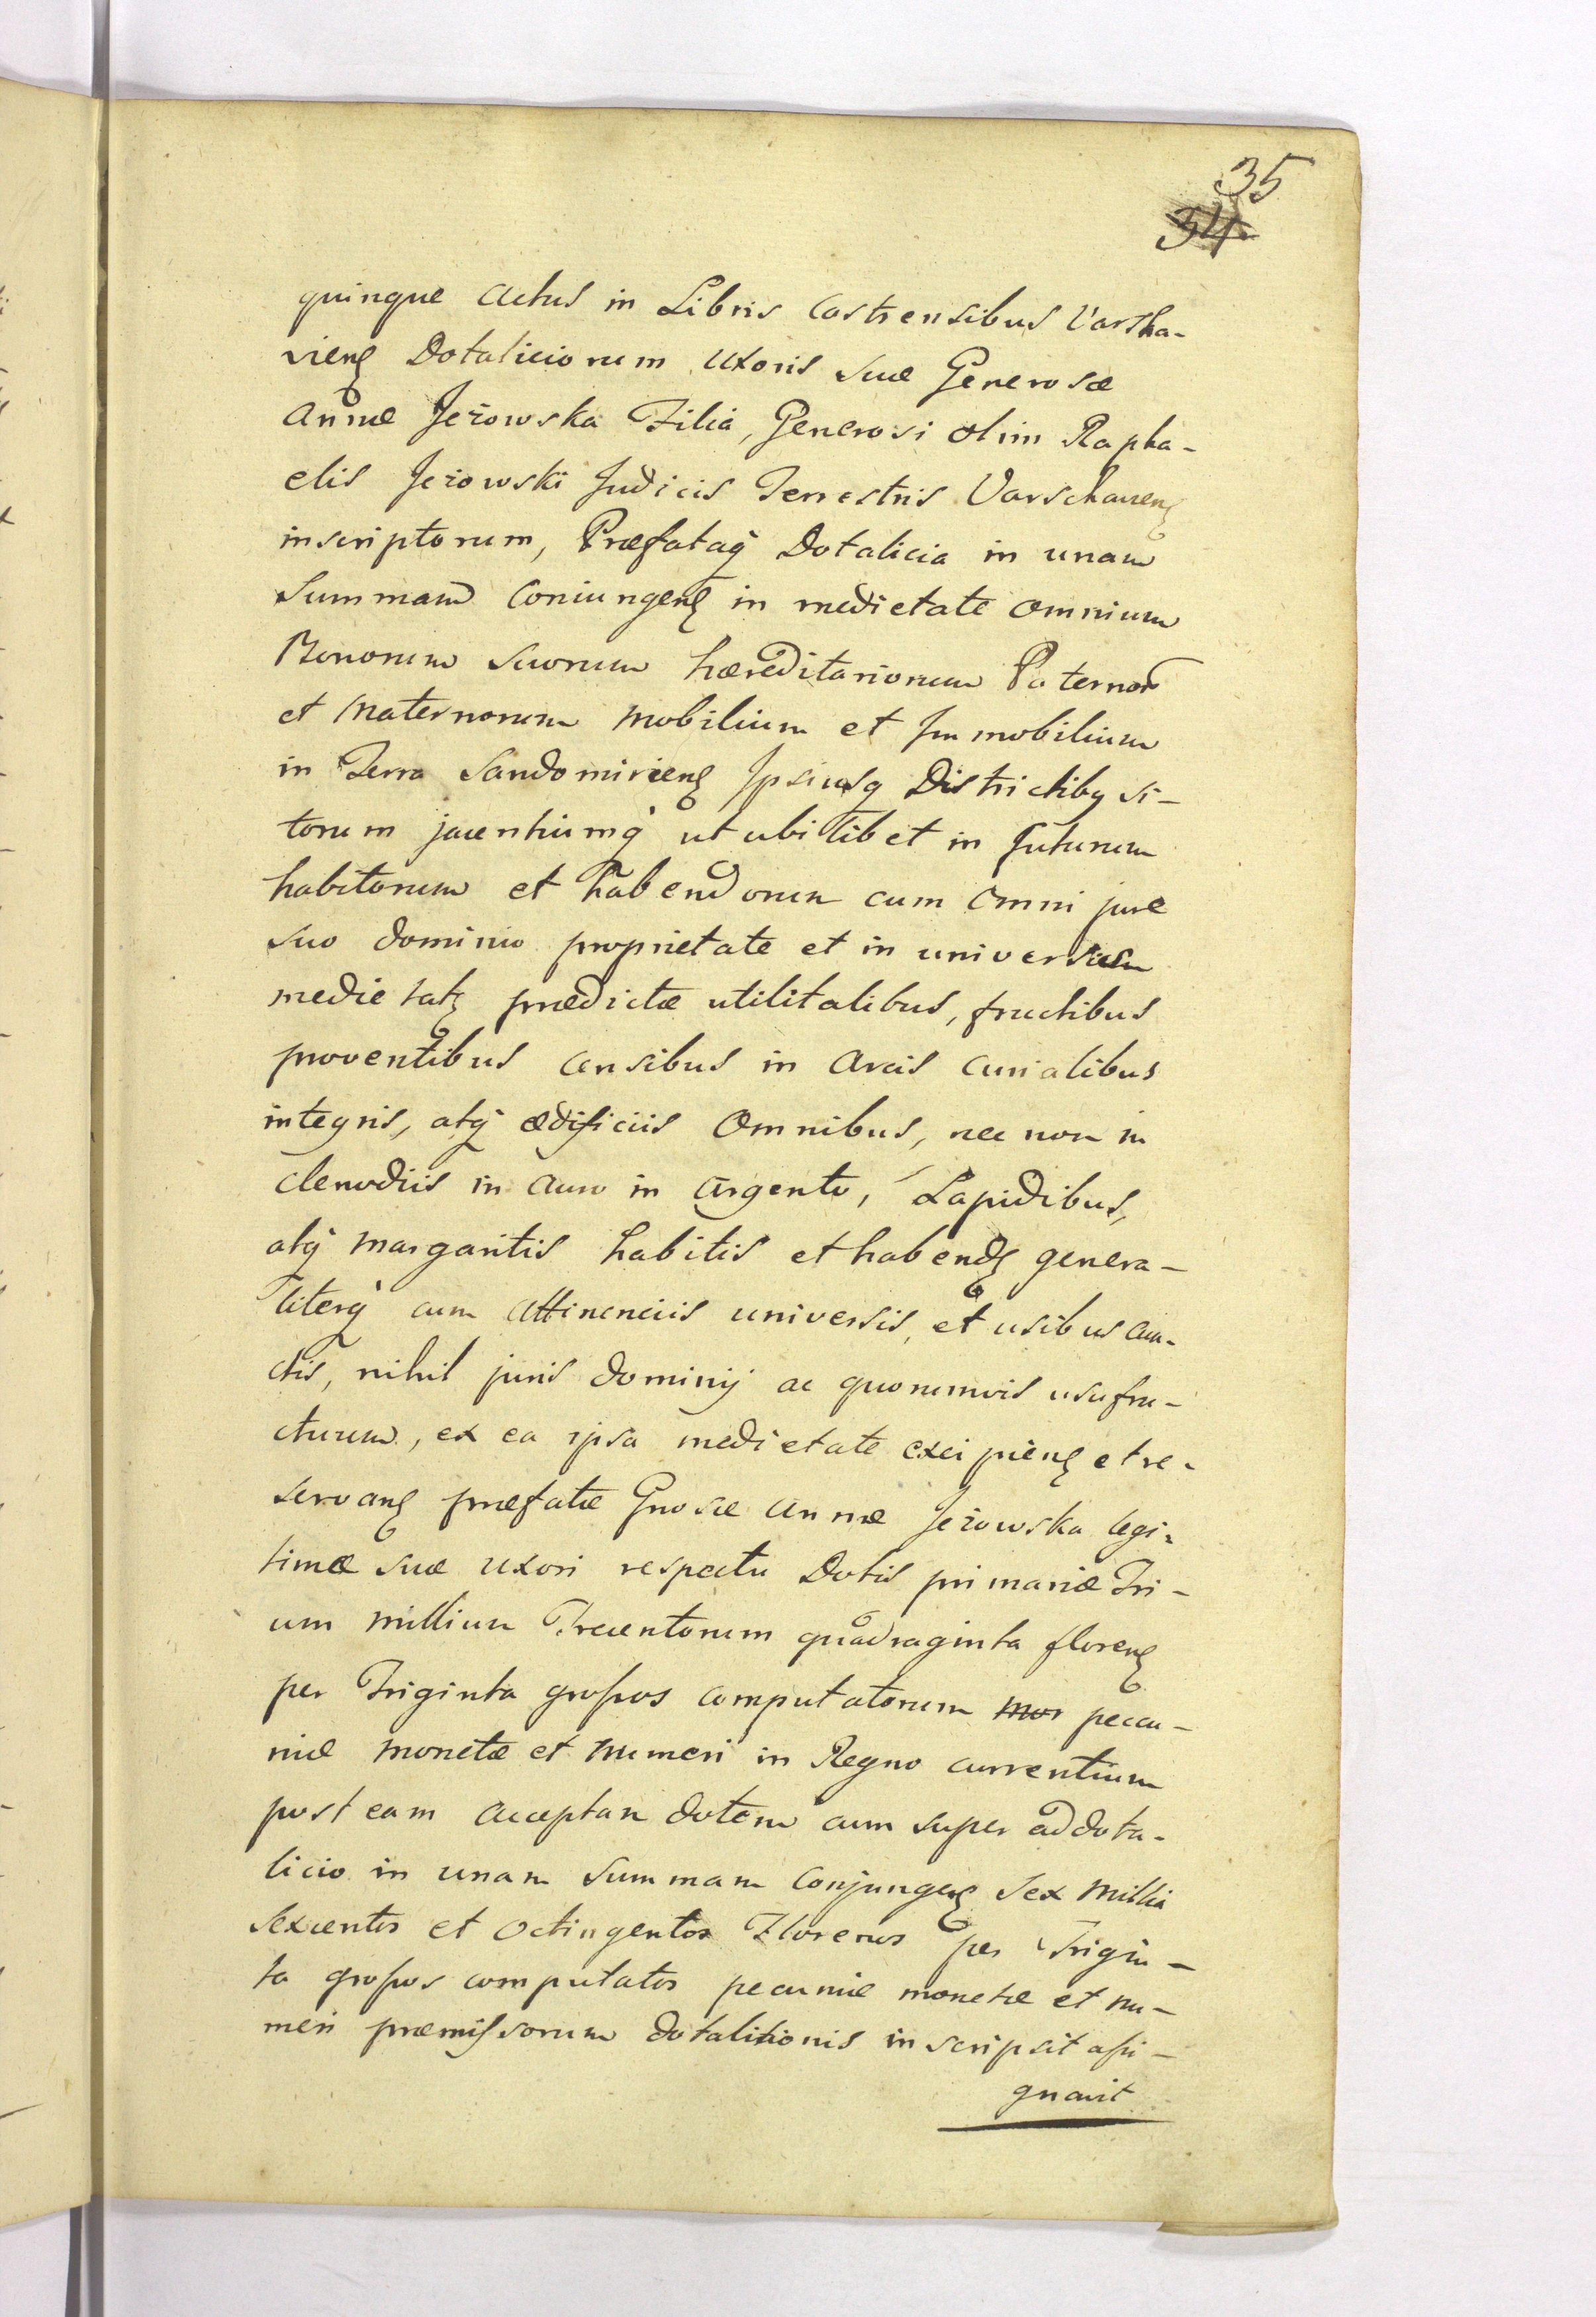 35
34
quinque actus in Libris Castrensibus Varsha-
vieng Dotaliciorum Uxoris suæ Generosæ
Annæ Jeżowska Filia, Generosi olim Rapha-
elis Jeżowski Judicis Terrestris Varschauieng
inscriptorum, Præfatasq Dotalicia in unam
Summam Coniungeng in medietate omnium
Bonorum suorum hæreditariorum Paternor
et Maternorum Mobilium et Immobilium
in Terra Sandomirieng Ipsiusq Districtibq si-
torum jacentiumq ut ubi libet in futurum
habitorum et habendorum cum omni jure
suo dominio proprietate et in universum
medietatq prædictæ utilitatibus, fructibus
proventibus Censibus in Areis Curialibus
integris, atq ædificiis Omnibus, nec non in
Clenodiis in Auro in Argento, Lapidibus,
atq Margaritis habitis et habendq genera-
literq cum Attinenciis universis, et usibus cun-
ctis, nihil juris dominij ac quorumvis usufru-
ctuum, ex ea ipsa medietate excipieng et re-
servang præfatæ Gnosæ Annæ Jeżowska legi-
timæ suæ Uxori respectu Dotis primariæ Tri-
um Millium Trecentorum quadraginta floreng
per Triginta grossos computatorum mor pecu-
niæ Monetæ et Numeri in Regno currentium
post eam acceptam dotem cum super addota-
licio in unam Summam Conjungeng Sex Millia
Sexcentos et Octingentos Florenos per Trigin-
ta grossos computatos pecuniæ monetæ et nu-
meri præmissorum dotalitionis inscripsit assi-
gnavit